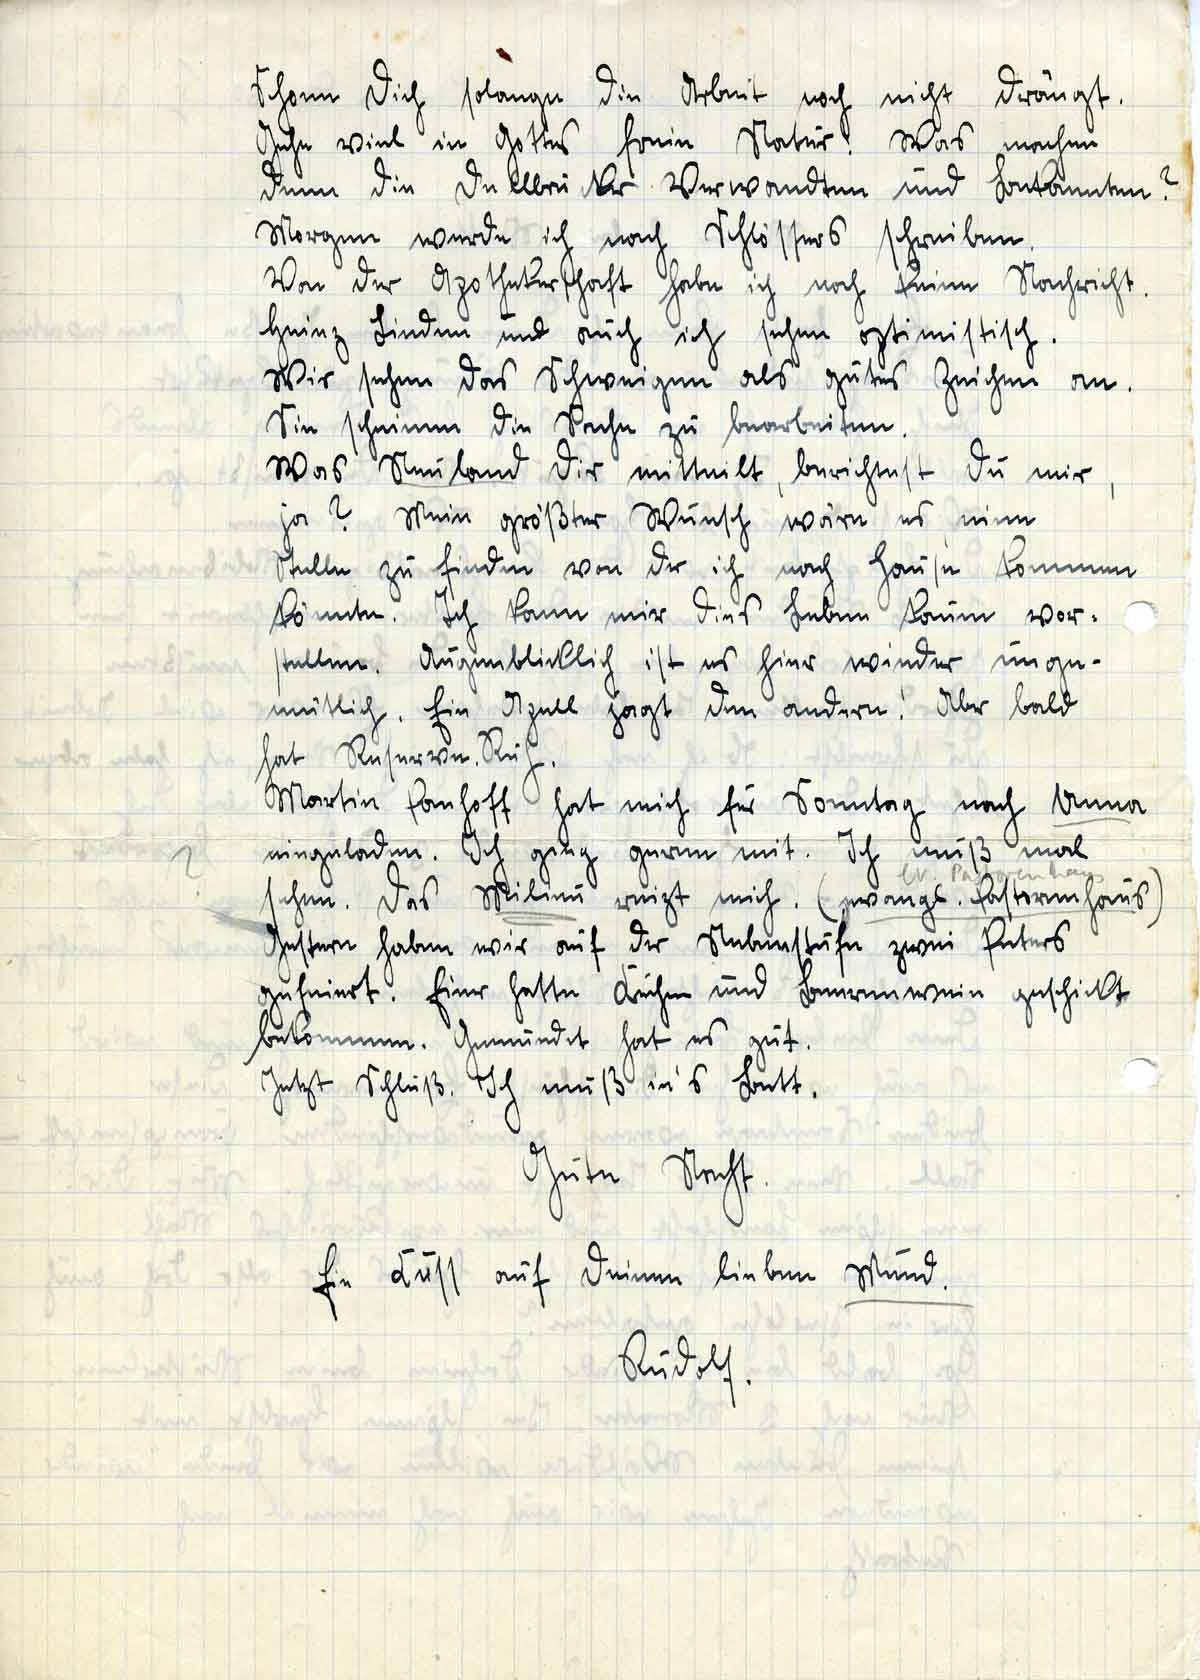 Schone Dich solange die Arbeit noch nicht drängt.
Gehe viel in Gottes freie Natur! Was machen
denn die Dellbrücker Verwandten und Bekannten?
Morgen werde ich nach Schlössers schreiben.
Von der Apothekerschaft habe ich noch keine Nachricht.
Heinz Linden und auch ich sehen optimistisch.
Wir sehen das Schweigen als gutes Zeichen an.
Sie scheinen die Sache zu bearbeiten.
Was Neuland Dir mitteilt, berichtest Du mir,
ja? Mein größter Wunsch wäre es, eine
Stelle zu finden von der ich nach Hause kommen
könnte. Ich kann mir dies Leben kaum vor-
stellen. Augenblicklich ist es hier wieder unge-
mütlich. Ein Apell jagt den andern! Aber bald
hat Reserve Ruh.
Martin Fanhoff hat mich für Sonntag nach Unna
eingeladen. Ich ging gerne mit. Ich muß mal
?
ev. Pastorenhaus
sehen. Das Milieu reizt mich. (evangl. Pastorenhaus)
Gestern haben wir auf der Nebenstufe zwei Peters
gefeiert. Einer hatte Kuchen und Beerenwein geschickt
bekommen. Gemundet hat es gut.
Jetzt Schluß. Ich muß in's Bett.
Gute Nacht.
Ein Kuss auf Deinen lieben Mund.
Rudolf.